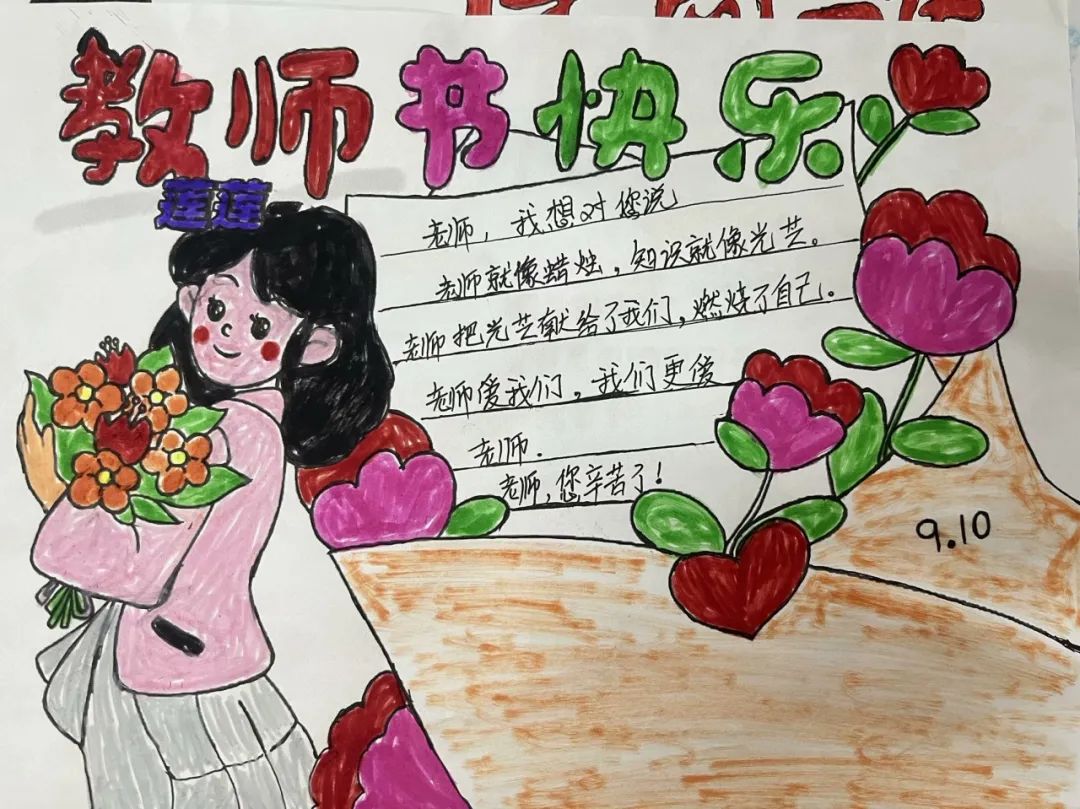 教师节快乐
莲莲
老师，我想对您说
老师就像蜡烛，知识就像光芒。
老师把光芒献给了我们，燃烧了自己。
老师爱我们，我们更爱
老师.
老师，您辛苦了！
9.10